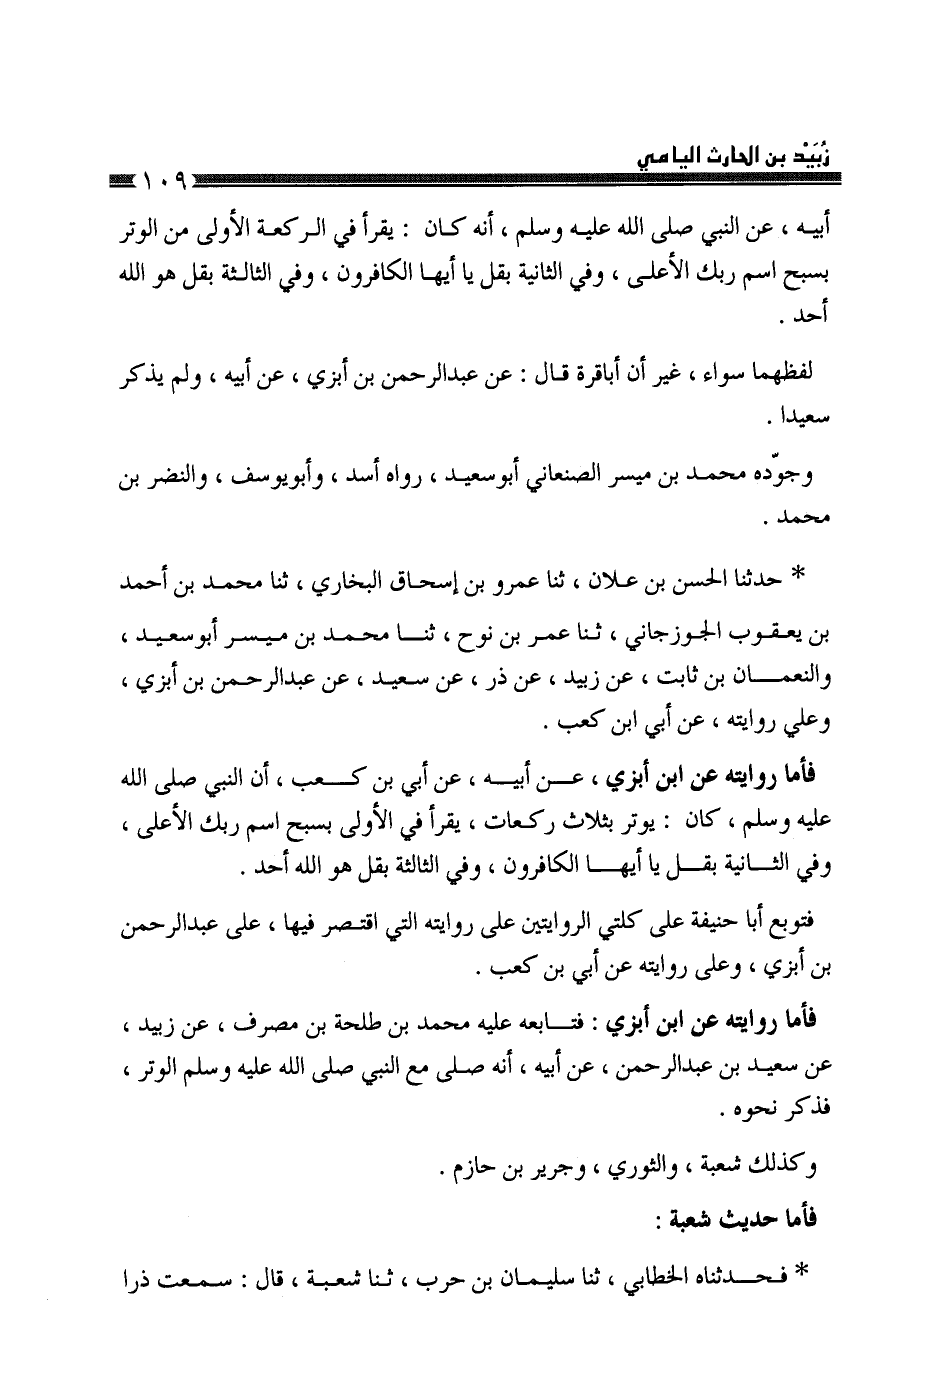 زُبَيْد بن الحارث اليامي
١٠٩
أبيه ، عن النبي صلى الله عليه وسلم ، أنه كان : يقرأ في الركعة الأولى من الوتر
بسبح اسم ربك الأعلى ، وفي الثانية بقل يا أيها الكافرون ، وفي الثالثة بقل هو الله
أحد .
لفظهما سواء ، غير أن أباقرة قال : عن عبدالرحمن بن أبزي ، عن أبيه ، ولم يذكر
سعيدا .
وجوّده محمد بن ميسر الصنعاني أبوسعيد ، رواه أسد ، وأبويوسف ، والنضر بن
محمد .
* حدثنا الحسن بن علان ، ثنا عمرو بن إسحاق البخاري ، ثنا محمد بن أحمد
بن يعقوب الجوزجاني ، ثنا عمر بن نوح ، ثنا محمد بن ميسر أبوسعيد ،
والنعمان بن ثابت ، عن زبيد ، عن ذر ، عن سعيد ، عن عبدالرحمن بن أبزي ،
وعلي روايته ، عن أبي ابن كعب .
فأما روايته عن ابن أبزي ، عن أبيه ، عن أبي بن كعب ، أن النبي صلى الله
عليه وسلم ، كان : يوتر بثلاث ركعات ، يقرأ في الأولى بسبح اسم ربك الأعلى ،
وفي الثانية بقل يا أيها الكافرون ، وفي الثالثة بقل هو الله أحد .
فتوبع أبا حنيفة على كلتي الروايتين على روايته التي اقتصر فيها ، على عبدالرحمن
بن أبزي ، وعلى روايته عن أبي بن كعب .
فأما روايته عن ابن أبزي : فتابعه عليه محمد بن طلحة بن مصرف ، عن زبيد ،
عن سعيد بن عبدالرحمن ، عن أبيه ، أنه صلى مع النبي صلى الله عليه وسلم الوتر ،
فذكر نحوه .
وكذلك شعبة ، والثوري ، وجرير بن حازم .
فأما حديث شعبة :
* فحدثناه الخطابي ، ثنا سليمان بن حرب ، ثنا شعبة ، قال : سمعت ذرا